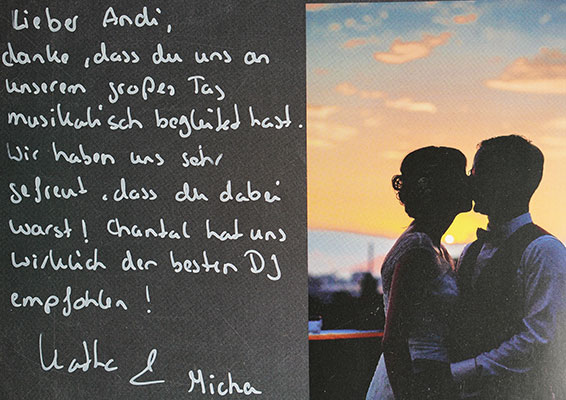 Lieber Andi,
danke, dass du uns an
unserem großes Tag
musikalisch begleitet hast.
Wir haben uns sehr
gefreut, dass du dabei
warst! Chantal hat uns
wirklich der besten DJ
empfohlen!
Katha &
Micha